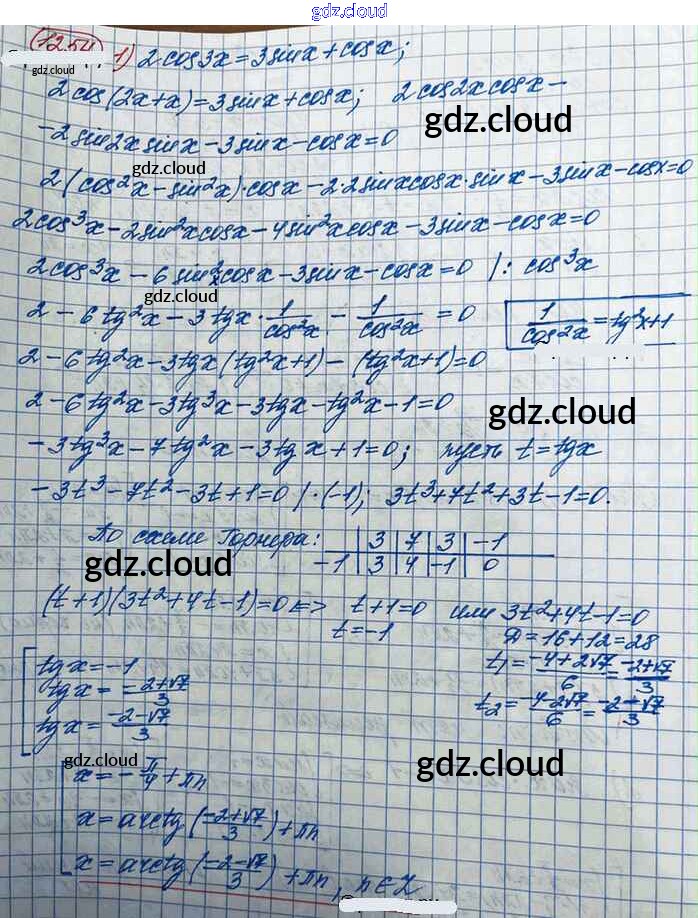 gdz.cloud
1254 1) 2cos3x = 3sinx + cosx;
gdz.cloud
2cos(2x+x) = 3sinx + cosx; 2cos2x cosx −
gdz.cloud
−2sin2x sinx − 3sinx − cosx = 0
gdz.cloud
2(cos²x − sin²x)·cosx − 2·2sinxcosx·sinx − 3sinx − cosx = 0
2cos³x − 2sin²xcosx − 4sin²xcosx − 3sinx − cosx = 0
gdz.cloud
2cos³x − 6sin²xcosx − 3sinx − cosx = 0 /: cos³x
gdz.cloud
2 − 6tg²x − 3tgx · 1/cos²x − 1/cos²x = 0 1/cos²x = tg²x+1
2 − 6tg²x − 3tgx(tg²x+1) − (tg²x+1) = 0
2 − 6tg²x − 3tg³x − 3tgx − tg²x − 1 = 0
gdz.cloud
−3tg³x − 7tg²x − 3tgx + 1 = 0; пусть t = tgx
−3t³ − 7t² − 3t + 1 = 0 /·(−1); 3t³ + 7t² + 3t − 1 = 0.
По схеме Горнера: | 3 | 7 | 3 | −1
−1 | 3 | 4 | −1 | 0
gdz.cloud gdz.cloud
(t+1)(3t²+4t−1) = 0 <=> t+1=0 или 3t²+4t−1=0
t = −1 D = 16+12 = 28
t₁ = (−4+2√7)/6 = (−2+√7)/3
t₂ = (−4−2√7)/6 = (−2−√7)/3
tgx = −1
tgx = (−2+√7)/3
tgx = (−2−√7)/3
gdz.cloud
gdz.cloud
x = −π/4 + πn
x = arctg((−2+√7)/3) + πn
x = arctg((−2−√7)/3) + πn, n∈Z